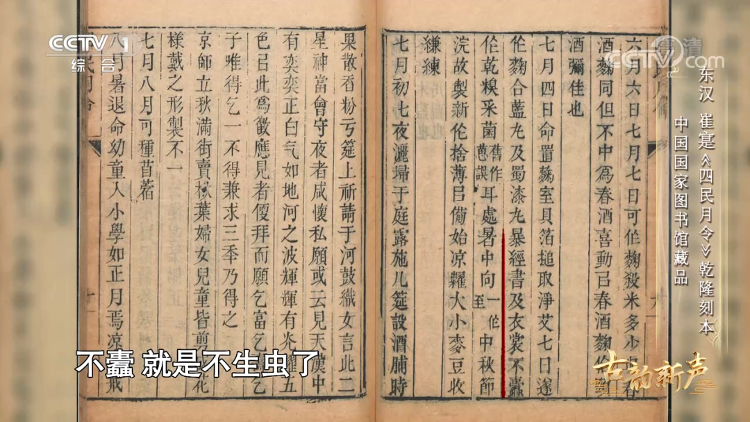 CCTV 1
综合
CCTV.com
东汉 崔寔《四民月令》乾隆刻本
中国国家图书馆藏品
六月六日七月七日可作麴殺米多少
酒麴同但不中為春酒喜動㠯春酒麴
酒彌佳也
七月四日命置麴室具箔搥取淨艾七日遂
作麴合藍丸及蜀漆丸暴經書及衣裳不蠹
作乾糗采葸舊作葸誤耳處暑中向一作至中秋節
浣故製新作袷薄㠯備始凉糶大小麥豆收
縑練
七月初七夜灑埽于庭露施几筵設酒脯時
果散香粉亏筵上祈請于河鼓織女言此二
星神當會守夜者咸懷私願或云見天漢中
有奕奕正白气如地河之波輝輝有光五
色㠯此為徵應見者便拜而願乞富乞壽乞
子唯得乞一不得兼求三季乃得之
京師立秋滿街賣楸葉婦女兒童皆剪花
樣戴之形製不一
七月八月可種苜蓿
八月暑退命幼童入小學如正月焉凉戒
不蠹 就是不生虫了
古韵新声